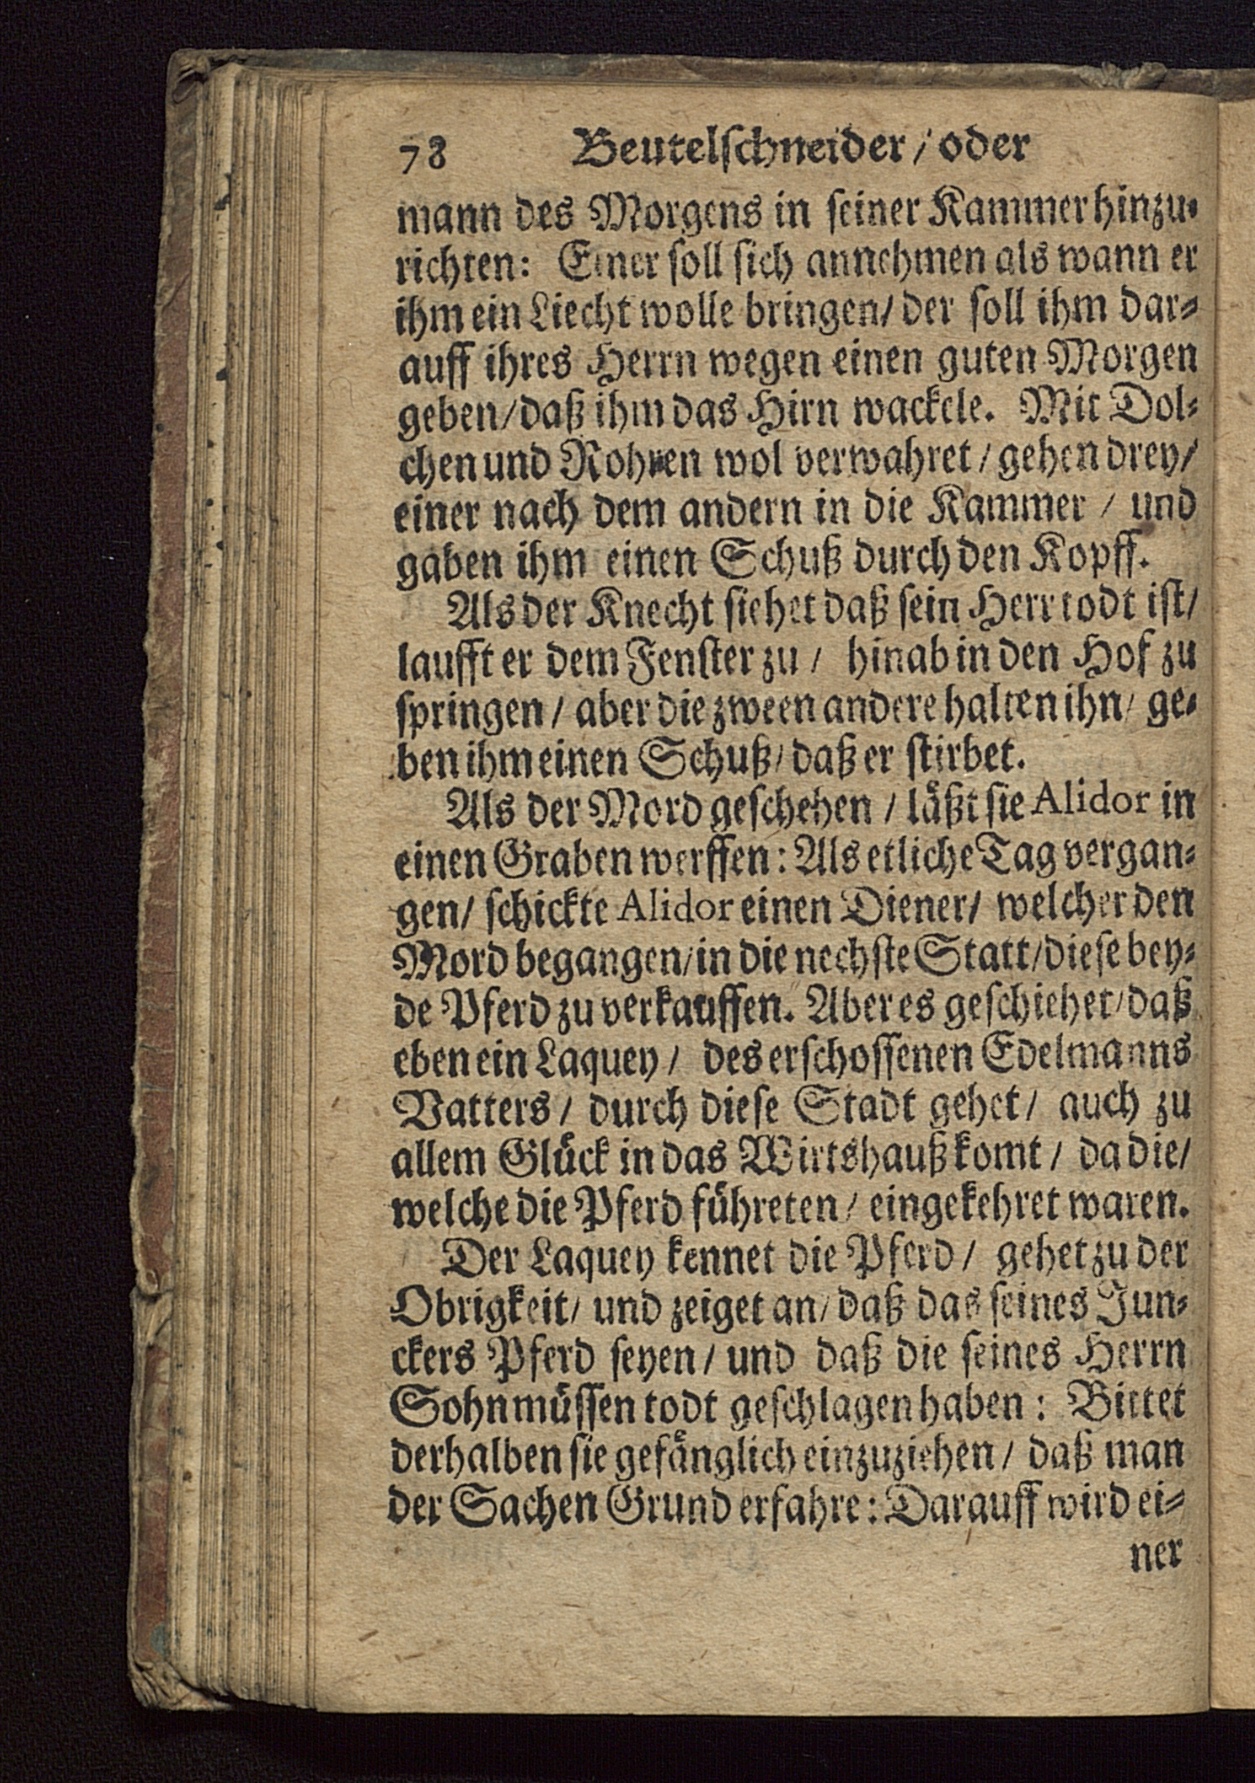 78 Beutelschneider / oder
mann des Morgens in seiner Kammer hinzu-
richten: Einer soll sich annehmen als wann er
ihm ein Liecht wolle bringen / der soll ihm dar-
auff ihres Herrn wegen einen guten Morgen
geben / daß ihm das Hirn wackele. Mit Dol-
chen und Rohren wol verwahret / gehen drey /
einer nach dem andern in die Kammer / und
gaben ihm einen Schuß durch den Kopff.
Als der Knecht siehet daß sein Herr todt ist /
laufft er dem Fenster zu / hinab in den Hof zu
springen / aber die zween andere halten ihn / ge-
ben ihm einen Schuß / daß er stirbet.
Als der Mord geschehen / läßt sie Alidor in
einen Graben werffen: Als etliche Tag vergan-
gen / schickte Alidor einen Diener / welcher den
Mord begangen / in die nechste Statt / diese bey-
de Pferd zu verkauffen. Aber es geschiehet / daß
eben ein Laquey / des erschossenen Edelmanns
Vatters / durch diese Stadt gehet / auch zu
allem Glück in das Wirtshauß komt / da die /
welche die Pferd führeten / eingekehret waren.
Der Laquey kennet die Pferd / gehet zu der
Obrigkeit / und zeiget an / daß das seines Jun-
ckers Pferd seyen / und daß die seines Herrn
Sohn müssen todt geschlagen haben: Bittet
derhalben sie gefänglich einzuziehen / daß man
der Sachen Grund erfahre: Darauff wird ei-
ner